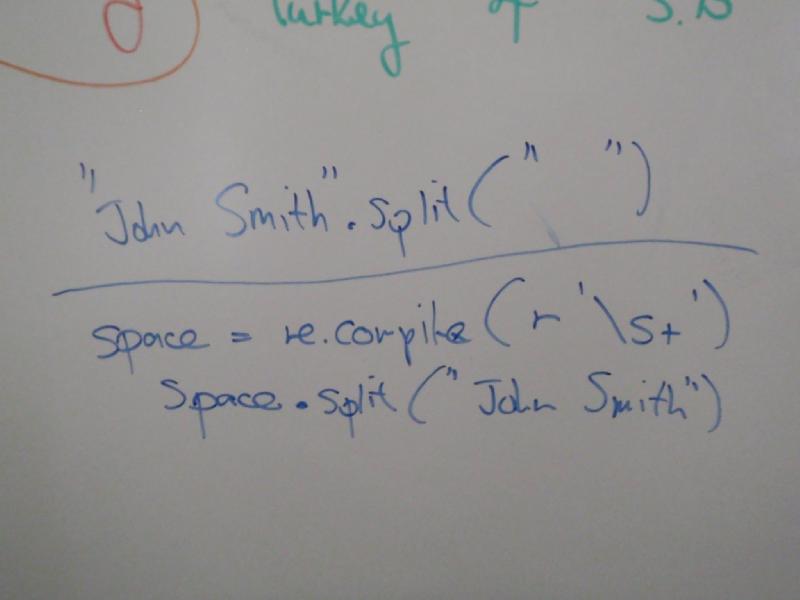 Turkey S.D
"John Smith".split(" ")
space = re.compile(r'\s+')
space.split("John Smith")